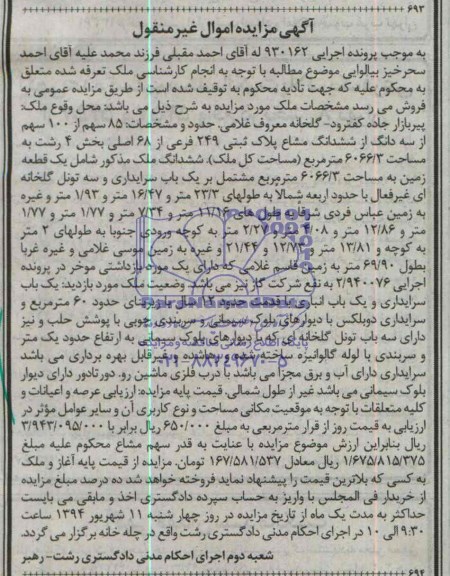 ۶۹۳
آگهی مزایده اموال غیر منقول
به موجب پرونده اجرایی ۹۳۰۱۶۲ له آقای احمد مقبلی فرزند محمد علیه آقای احمد
سحرخیز بیالوایی موضوع مطالبه با توجه به انجام کارشناسی ملک تعرفه شده متعلق
به محکوم علیه که جهت تأدیه محکوم به توقیف شده است از طریق مزایده عمومی به
فروش می رسد مشخصات ملک مورد مزایده به شرح ذیل می باشد: محل وقوع ملک:
پیربازار جاده کفترود- گلخانه معروف غلامی. حدود و مشخصات: ۸۵ سهم از ۱۰۰ سهم
از سه دانگ از ششدانگ مشاع پلاک ثبتی ۲۴۹ فرعی از ۶۸ اصلی بخش ۴ رشت به
مساحت ۶۰۶۶/۳ مترمربع (مساحت کل ملک). ششدانگ ملک مذکور شامل یک قطعه
زمین به مساحت ۶۰۶۶/۳ مترمربع مشتمل بر یک باب سرایداری و سه تونل گلخانه
ای غیرفعال با حدود اربعه شمالا به طولهای ۲۳/۳ متر و ۱۶/۴۷ متر و ۱/۹۳ متر و غیره
به زمین عباس فردی شرقا به طول های ۱۱/۱۶ متر و ۷/۳۴ متر و ۱/۷۷ متر و ۱/۷۷
متر و ۱۲/۸۶ متر و ۴/۰۸ متر و ۲/۲۷ متر به کوچه ورودی جنوبا به طولهای ۲ متر
به کوچه و ۱۳/۸۱ متر و ۱۲/۷۳ و ۲۱/۴۴ و غیره به زمین موسی غلامی و غیره غربا
بطول ۶۹/۹۰ متر به زمین قاسم غلامی که دارای یک مورد بازداشتی موخر در پرونده
اجرایی ۲/۹۴۰۰۷۶ به نفع شرکت کار نیز می باشد وضعیت ملک مورد بازدید: یک باب
سرایداری و یک باب انباری با قدمت حدود ۱۲ سال با زیربنای حدود ۶۰ مترمربع و
سرایداری دوبلکس با دیوارهای بلوک سیمانی و سربندی چوبی با پوشش حلب و نیز
دارای سه باب تونل گلخانه ای که با دیوارهای بلوک سیمانی به ارتفاع حدود یک متر
و سربندی با لوله گالوانیزه ساخته شده و رها شده و غیرقابل بهره برداری می باشد
سرایداری دارای آب و برق مجزا می باشد با درب فلزی ماشین رو. دورتادور دارای دیوار
بلوک سیمانی می باشد غیر از طول شمالی. قیمت پایه مزایده: ارزیابی عرصه و اعیانات و
کلیه متعلقات با توجه به موقعیت مکانی مساحت و نوع کاربری آن و سایر عوامل مؤثر در
ارزیابی به قیمت روز از قرار مترمربعی به مبلغ ۶۵۰/۰۰۰ ریال برابر با ۳/۹۴۳/۰۹۵/۰۰۰
ریال بنابراین ارزش موضوع مزایده با عنایت به قدر سهم مشاع محکوم علیه مبلغ
۱/۶۷۵/۸۱۵/۳۷۵ ریال معادل ۱۶۷/۵۸۱/۵۳۷ تومان. مزایده از قیمت پایه آغاز و ملک
به کسی که بالاترین قیمت را پیشنهاد نماید فروخته خواهد شد ده درصد مبلغ مزایده
از خریدار فی المجلس با واریز به حساب سپرده دادگستری اخذ و مابقی می بایست
حداکثر به مدت یک ماه از تاریخ مزایده در روز چهار شنبه ۱۱ شهریور ۱۳۹۴ ساعت
۹:۳۰ الی ۱۰ در اجرای احکام مدنی دادگستری رشت واقع در چله خانه برگزار می گردد.
شعبه دوم اجرای احکام مدنی دادگستری رشت- رهبر
۶۹۴